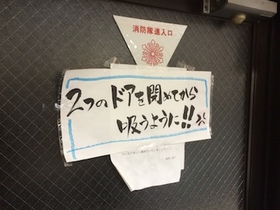 消防隊進入口
2つのドアを閉めてから
吸うように!!